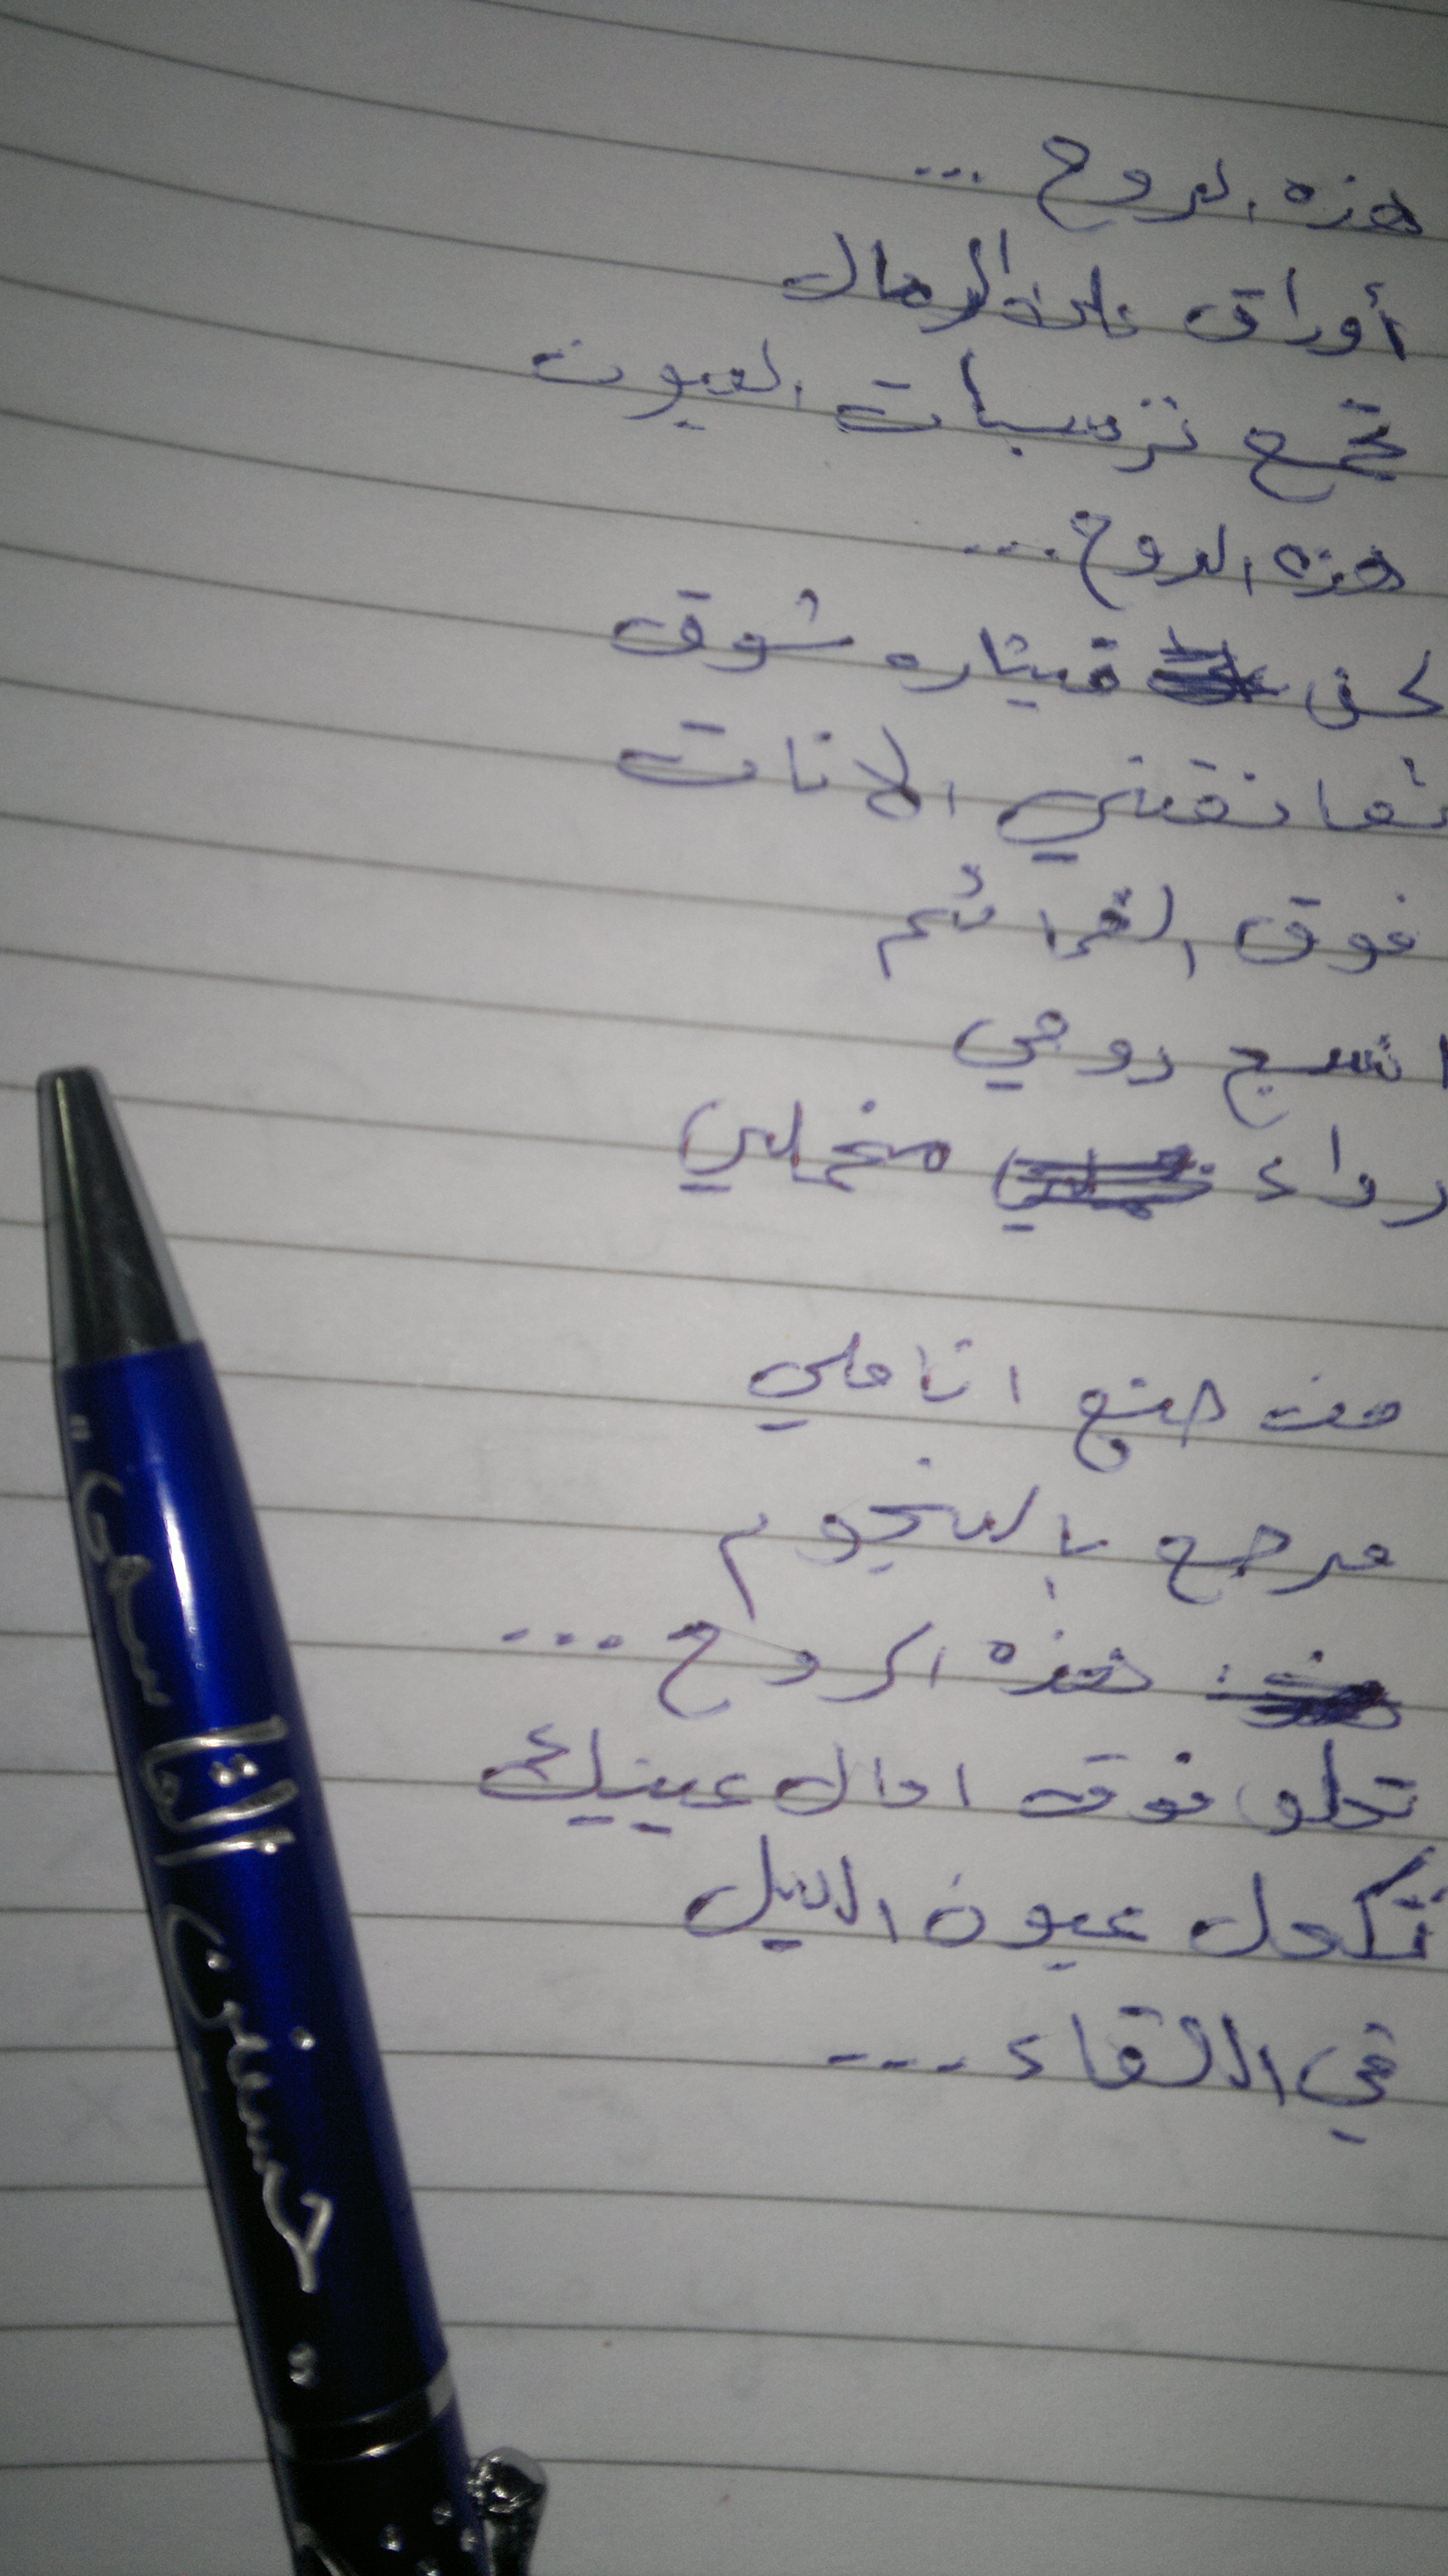 هذه الروح ...
أوراق على الرمال
تجمع ترسبات العيون
هذه الروح ...
لحن قيثاره شوق
تعانقني الانات
فوق الغمائم
انسج روحي
رداء مخملي
من صنع اناملي
مرصع بالنجوم
هذه الروح ....
تحلو فوق ادال عينيك
تكحل عيون الليل
في اللقاء ....
حسنين القاسمي